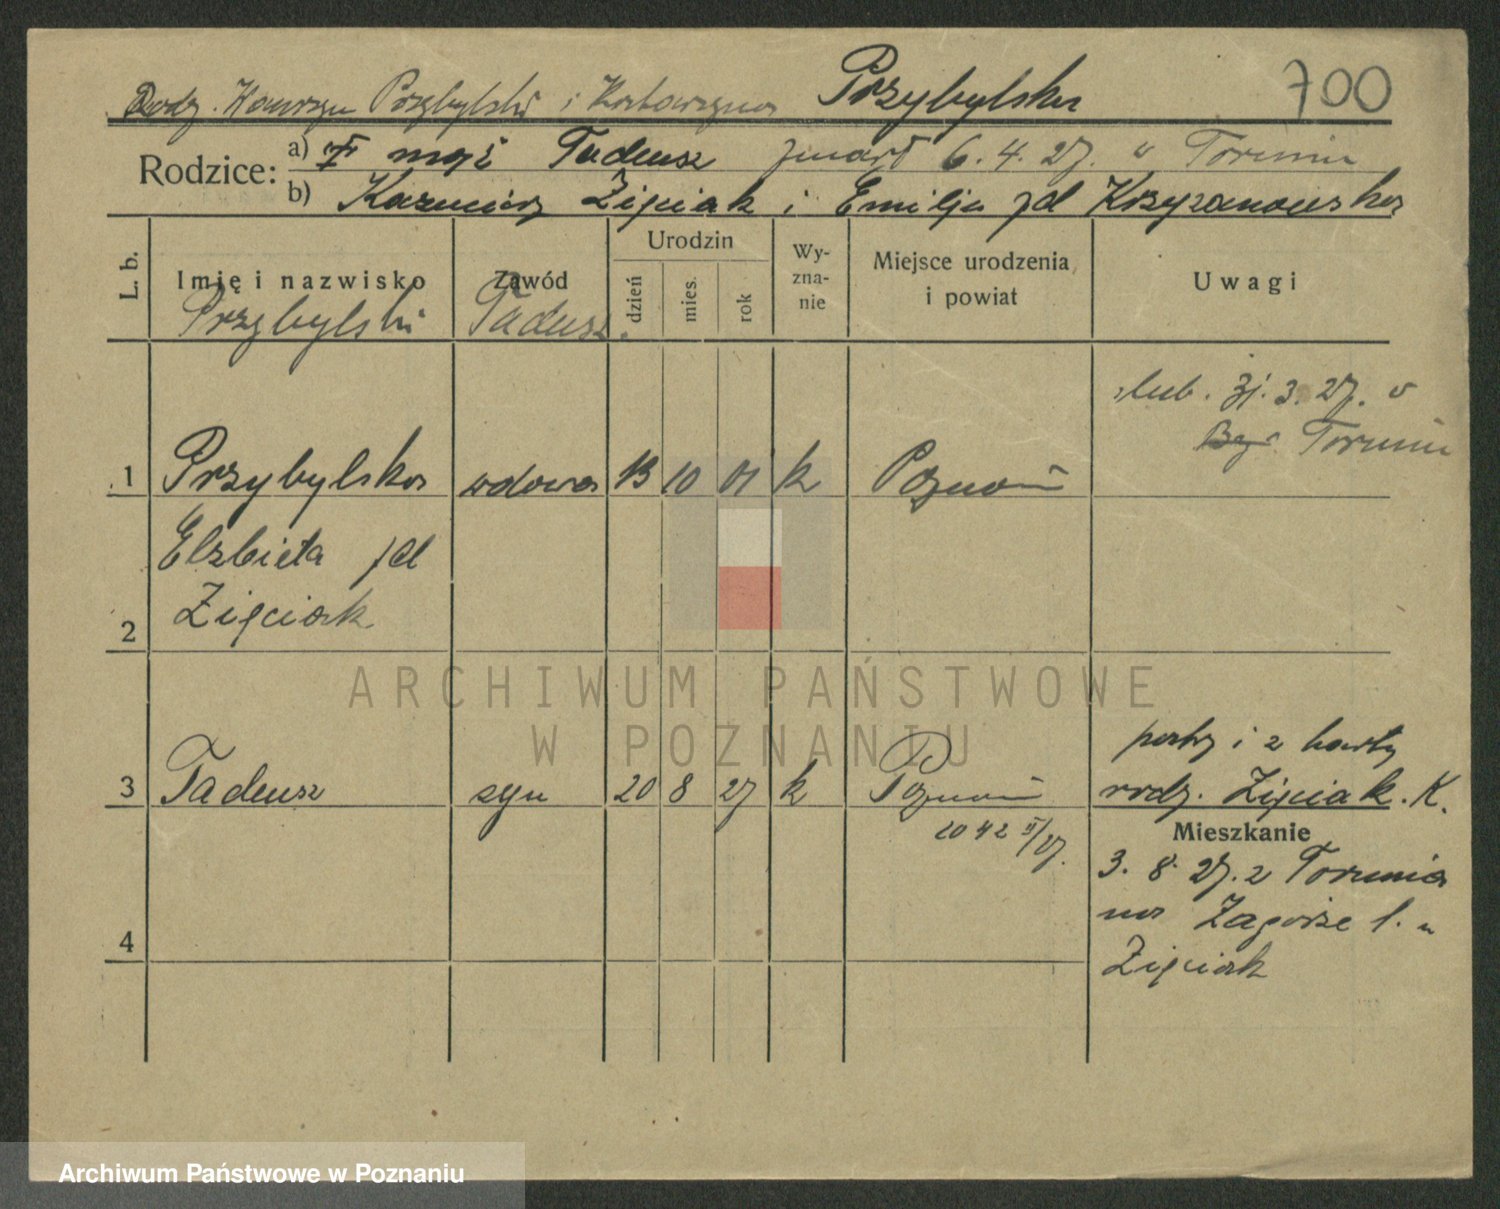 Rodz. Wawrzyn Przybylski i Katarzyna Przybylska 700
Rodzice: a) mąż Tadeusz zmarł 6.4.27. w Toruniu
b) Kazimierz Zięciak i Emilja zd Krzyżanowska
L. b. Imię i nazwisko Zawód Urodzin dzień mies. rok Wy-zna-nie Miejsce urodzenia i powiat Uwagi
Przybylski Tadeusz.
ślub. 31.3.27. w
Toruniu
1 Przybylska wdowa 13 10 01 k Poznań
Elzbieta zd
2 Zięciak
ARCHIWUM PAŃSTWOWE
W POZNANIU
z karty
3 Tadeusz syn 20 8 27 k Poznań rodz. Zięciak. K.
2042 II/27.
Mieszkanie
3. 8. 27. z Torunia
na Zagórze 1. u
4 Zięciak
Archiwum Państwowe w Poznaniu